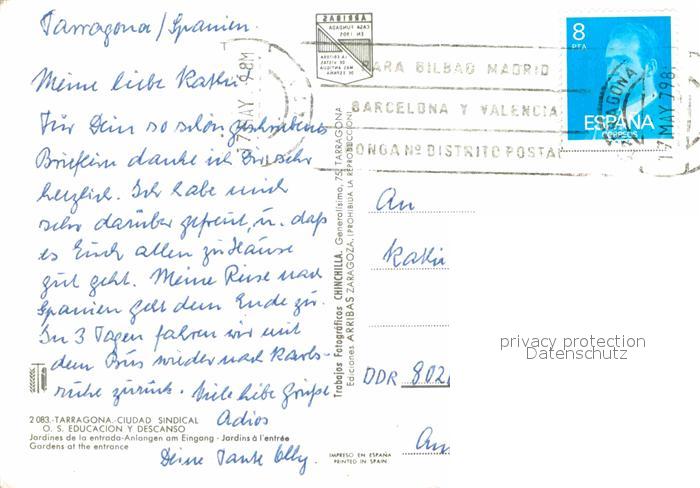 Tarragona/Spanien.
Meine liebe Kathi
Für Dein so schön geschriebenes
Brieflein danke ich Dir sehr
herzlich. Ich habe mich
sehr darüber gefreut, u. daß
es Euch allen zu Hause
gut geht. Meine Reise nach
Spanien geht dem Ende zu.
In 3 Tagen fahren wir mit
dem Bus wieder nach Karls-
ruhe zurück. Viele liebe Grüße
Adios
Deine Tante Elly.
2083.-TARRAGONA.-CIUDAD SINDICAL
O. S. EDUCACION Y DESCANSO
Jardines de la entrada-Anlangen am Eingang - Jardins à l'entrée
Gardens at the entrance
Trabajos Fotográficos CHINCHILLA. Generalísimo, 75. TARRAGONA
Ediciones ARRIBAS ZARAGOZA. (PROHIBIDA LA REPRODUCCION)
IMPRESO EN ESPAÑA
PRINTED IN SPAIN
ARRIBAS
CASA FUNDADA
EN 1905
PARA BILBAO MADRID
BARCELONA Y VALENCIA
PONGA Nº DISTRITO POSTAL
17 MAY 79 8M
8
PTA
ESPAÑA
CORREOS
An
Kathi
DDR 802
privacy protection
Datenschutz